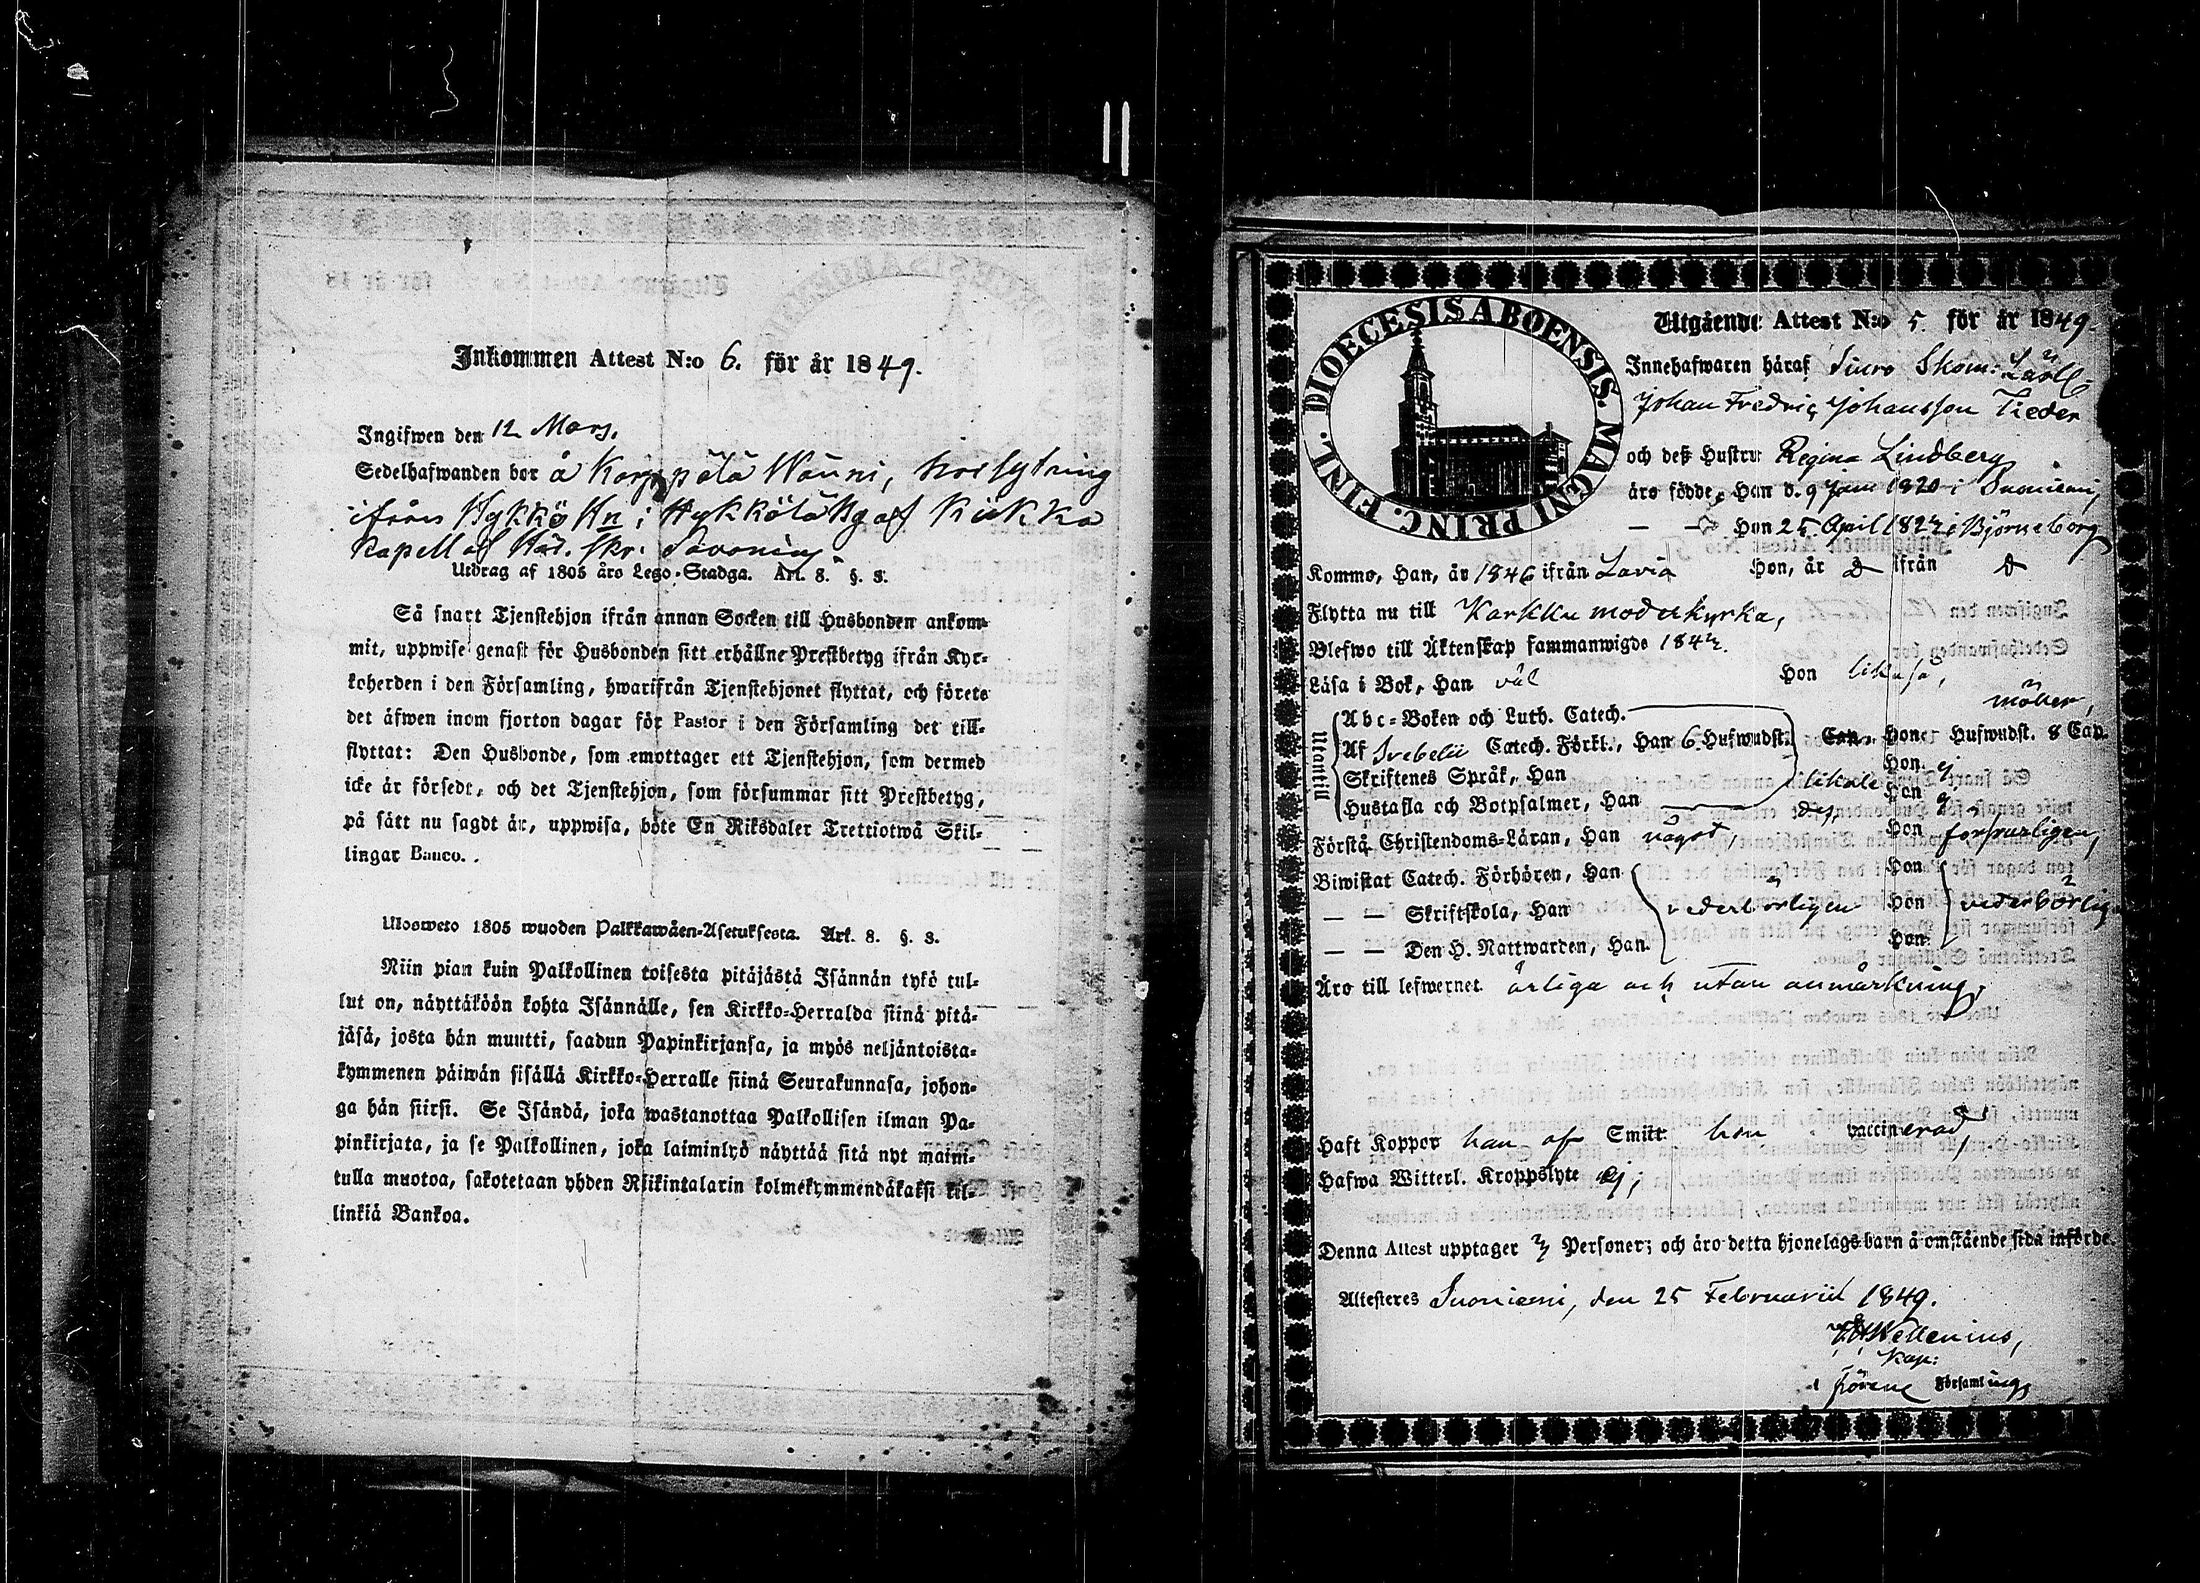 Inkommen Attest N:o 6. för år 1849.
Ingifwen den 12 Mars.
Sedelhafwanden bor å Karppälä Wänni,
ifrån Hykkö Hn i Hykkölä by af Kiikka
kapell af
Utdrag af 1805 års Lego-Stadga. Art. 8. §. 8.
Så snart Tjenstehjon ifrån annan Socken till Husbonden ankom-
mit, uppwise genast för Husbonden sitt erhållne Prestbetyg ifrån Kyr-
koherden i den Församling, hwarifrån Tjenstehjonet flyttat, och förete
det äfwen inom fjorton dagar för Pastor i den Församling det till-
flyttat: Den Husbonde, som emottager ett Tjenstehjon, som dermed
icke är försedt, och det Tjenstehjon, som försummar sitt Prestbetyg,
på sätt nu sagdt är, uppwisa, böte En Riksdaler Trettiotwå Skil-
lingar Banco.
Ulosweto 1805 wuoden Palkkawäen-Asetuksesta. Art. 8. §. 8.
Niin pian kuin Palkollinen toisesta pitäjästä Isännän tykö tul-
lut on, näyttäköön kohta Isännälle, sen Kirkko-Herralda siinä pitä-
jäsä, josta hän muutti, saadun Papinkirjansa, ja myös neljäntoista-
kymmenen päiwän sisällä Kirkko-Herralle siinä Seurakunnasa, johon-
ga hän siirsi. Se Isändä, joka wastanottaa Palkollisen ilman Pa-
pinkirjata, ja se Palkollinen, joka laiminlyö näyttää sitä nyt maini-
tulla muotoa, sakotetaan yhden Riikintalarin kolmekymmendäkaksi kil-
linkiä Bankoa.
DIOECESIS ABOENSIS. MAGNI PRINC. FINL.
Utgående Attest N:o 5. för år 1849.
Innehafwaren häraf Suro Skom:
Johan Fredric Johansson Tieder
och deß Hustru Regina Lindberg
äro födde, Han d. 9 Juni 1820 i Suoniemi,
— — Hon 25 April 1822 i Björneborg
Kommo, Han, år 1846 ifrån Lavia Hon, år D ifrån D
Flytta nu till Karkku moderkyrka,
Blefwo till Äktenskap sammanwigde 1842.
Läsa i Bok, Han väl Hon likaså,
Utantill
Abc-Boken och Luth. Catech. möller,
Af Svebelii Catech. Förkl., Han 6 Hufwudst. Cap. Hon Hufwudst. 8 Cap.
Skriftenes Språk, Han likale Hon ej
Hustafla och Botpsalmer, Han des, Hon ej
Förstå Christendoms-Läran, Han något, Hon försvarligen,
Biwistat Catech. Förhören, Han Hon
— — Skriftskola, Han vederbörligen Hon vederbörlig
— — Den H. Nattwarden, Han Hon
Äro till lefwernet ärliga och utan anmärkning,
Haft Koppor han af Smitt hon vaccinerad,
Hafwa Witterl. Kroppslyte ej;
Denna Attest upptager 2 Personer; och äro detta hjonelags barn å omstående sida införde.
Attesteres Suoniemi, den 25 Februarii 1849.
Wellenius,
Kap:
i förene Församling